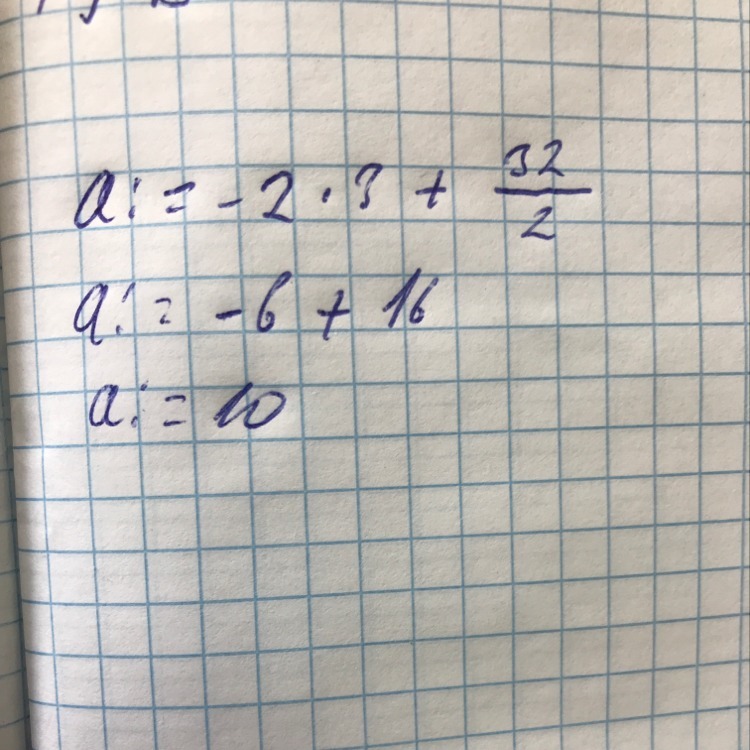 a: = - 2 · 3 + 32/2
a: = - 6 + 16
a: = 10